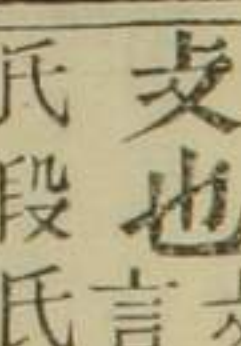 支也
言
氏段氏